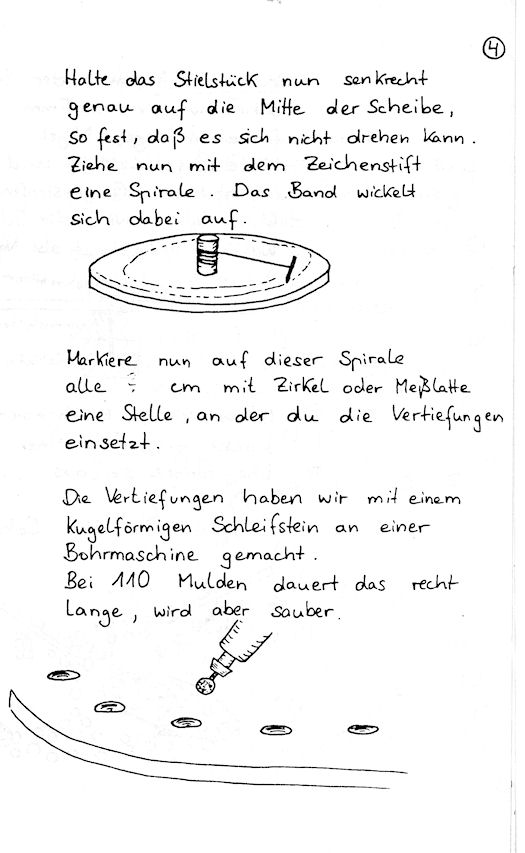 4
Halte das Stielstück nun senkrecht
genau auf die Mitte der Scheibe,
so fest, daß es sich nicht drehen kann.
Ziehe nun mit dem Zeichenstift
eine Spirale. Das Band wickelt
sich dabei auf.
Markiere nun auf dieser Spirale
alle cm mit Zirkel oder Meßlatte
eine Stelle, an der du die Vertiefungen
einsetzt.
Die Vertiefungen haben wir mit einem
Kugelförmigen Schleifstein an einer
Bohrmaschine gemacht.
Bei 110 Mulden dauert das recht
Lange, wird aber sauber.